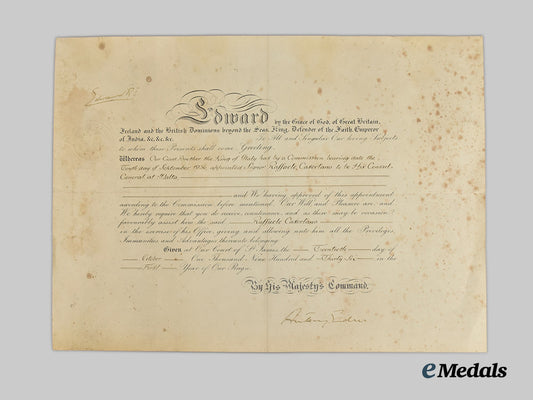 Edward R.I.
Edward by the Grace of God, of Great Britain,
Ireland and the British Dominions beyond the Seas, King, Defender of the Faith, Emperor
of India, &c, &c, &c. To All and Singular Our loving Subjects
to whom these Presents shall come Greeting.
Whereas Our Good Brother the King of Italy has by a Commission bearing date the
day of September 1936, appointed Signor Raffaele Casertano to be His Consul
General at Malta
and We having approved of this appointment
according to the Commission before mentioned, Our Will and Pleasure are, and
We hereby require that you do receive, countenance, and as there may be occasion
favourably assist him the said Raffaele Casertano
in the exercise of his Office, giving and allowing unto him all the Privileges,
Immunities and Advantages thereunto belonging
Given at Our Court of St James, the Twentieth day of
October One Thousand Nine Hundred and Thirty Six in the
First Year of Our Reign.
By His Majesty's Command,
Anthony Eden
eMedals